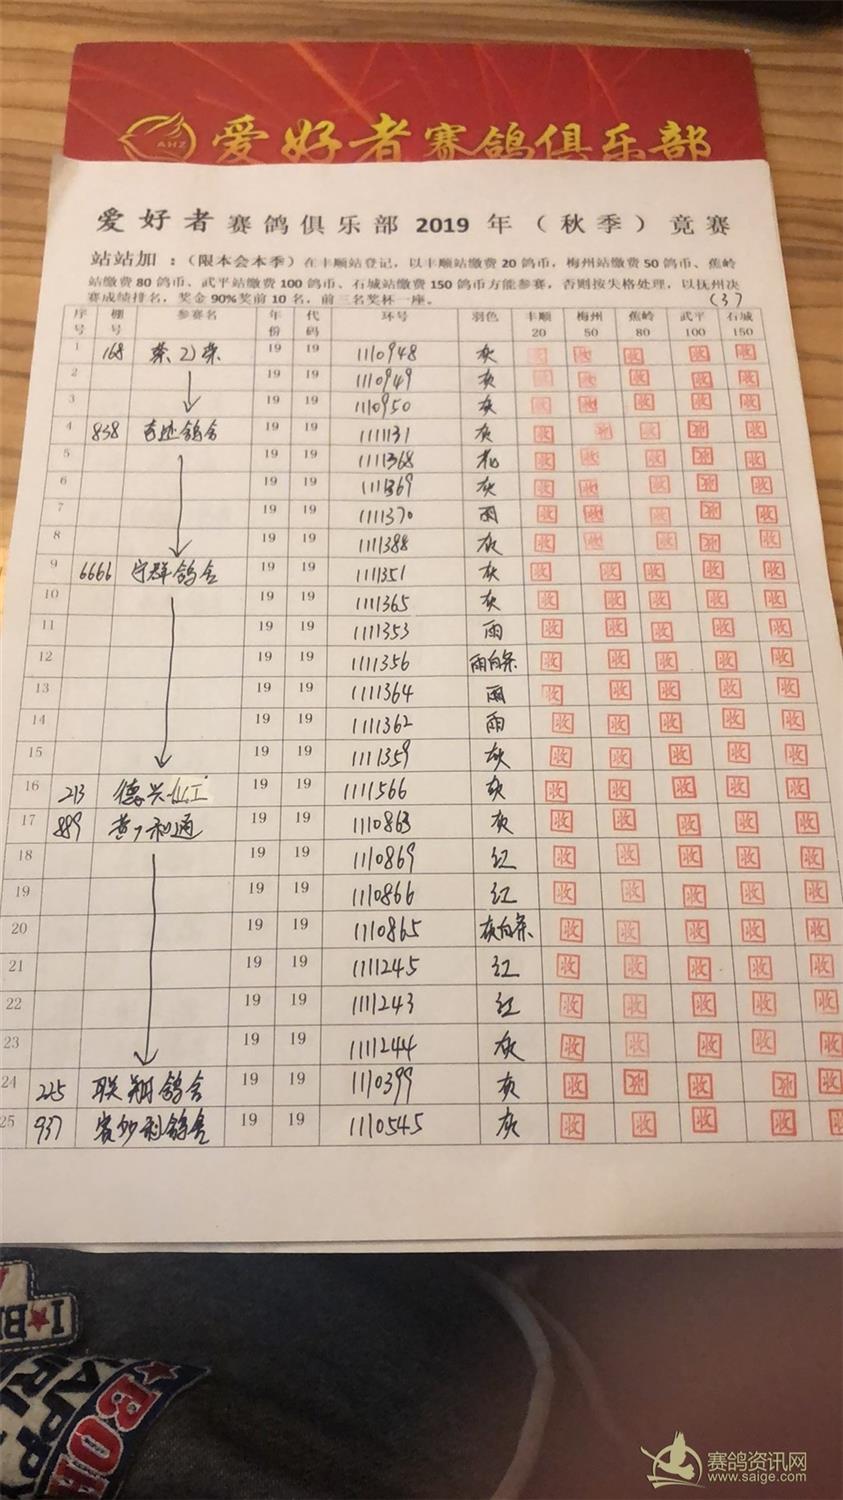 AHZ 爱好者赛鸽俱乐部
爱好者赛鸽俱乐部2019年（秋季）竞赛
站站加：（限本会本季）在丰顺站登记，以丰顺站缴费20鸽币，梅州站缴费50鸽币、蕉岭
站缴费80鸽币、武平站缴费100鸽币、石城站缴费150鸽币方能参赛，否则按失格处理，以抚州决
赛成绩排名，奖金90%奖前10名，前三名奖杯一座。
(3)
序号 棚号 参赛名 年份 代码 环号 羽色 丰顺20 梅州50 蕉岭80 武平100 石城150
1 168 19 19 1110948 灰 收 收 收 收 收
2 19 19 1110949 灰 收 收 收 收 收
3 19 19 1110950 灰 收 收 收 收 收
4 838 奇迹鸽舍 19 19 1111131 灰 收 收 收 收 收
5 19 19 1111368 花 收 收 收 收 收
6 19 19 1111369 灰 收 收 收 收 收
7 19 19 1111370 雨 收 收 收 收 收
8 19 19 1111388 灰 收 收 收 收 收
9 6666 守群鸽舍 19 19 1111351 灰 收 收 收 收 收
10 19 19 1111365 灰 收 收 收 收 收
11 19 19 1111353 雨 收 收 收 收 收
12 19 19 1111356 雨白条 收 收 收 收 收
13 19 19 1111364 雨 收 收 收 收 收
14 19 19 1111362 雨 收 收 收 收 收
15 19 19 1111359 灰 收 收 收 收 收
16 213 德兴化工 19 19 1111566 灰 收 收 收 收 收
17 889 19 19 1110863 灰 收 收 收 收 收
18 19 19 1110869 红 收 收 收 收 收
19 19 19 1110866 红 收 收 收 收 收
20 19 19 1110865 灰白条 收 收 收 收 收
21 19 19 1111245 红 收 收 收 收 收
22 19 19 1111243 红 收 收 收 收 收
23 19 19 1111244 灰 收 收 收 收 收
24 225 联翔鸽舍 19 19 1110399 灰 收 收 收 收 收
25 937 19 19 1110545 灰 收 收 收 收 收
赛鸽资讯网
www.saige.com